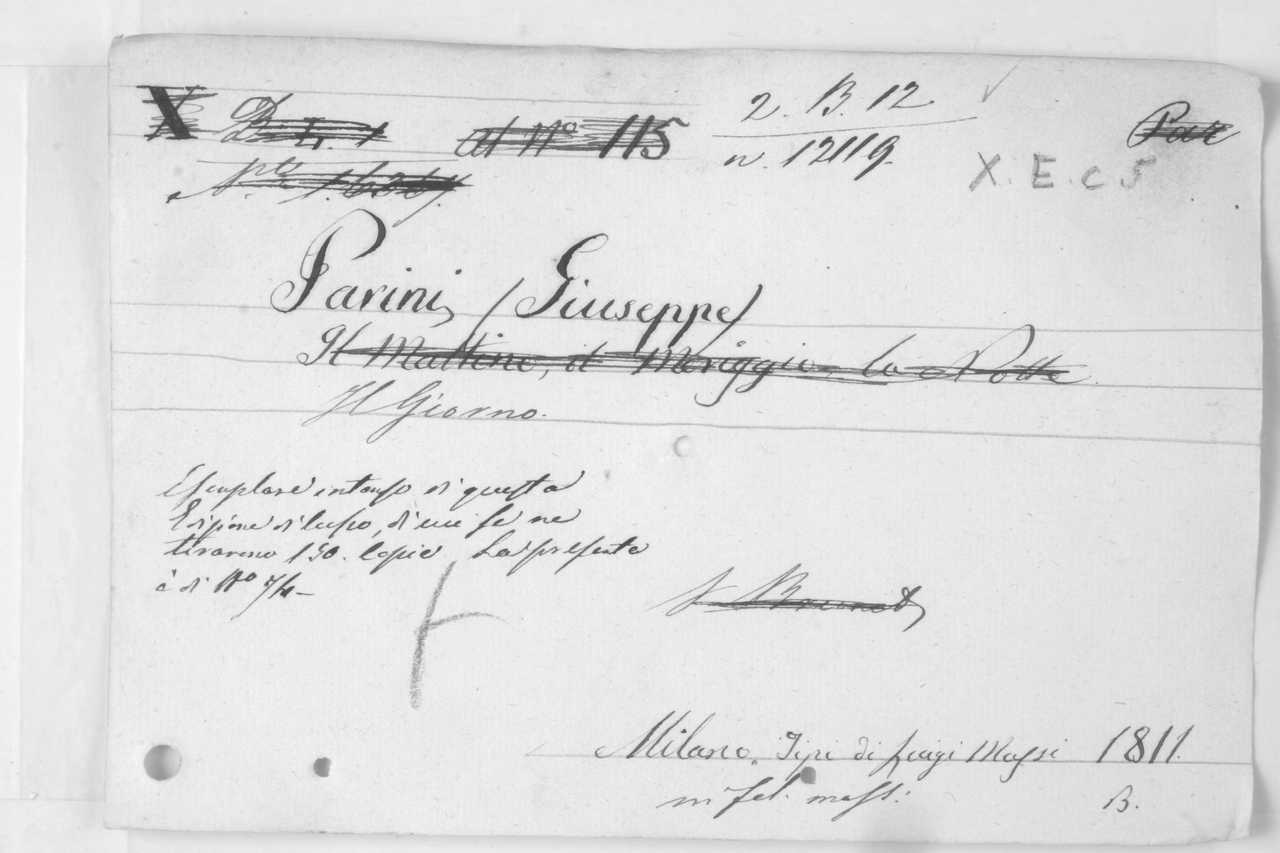 X B. L. 1 al N.º 115 2. B. 12
N.º n. 12119. Par
X. E. c 5
Parini, (Giuseppe)
Il Mattino, il Meriggio, la Notte.
Il Giorno.
Esemplare intonso di questa
Edizione di lusso, di cui se ne
tirarono 150. Copie. La presente
è di Nº 74–
Brunet,
Milano, Tipi di Luigi Mussi 1811.
in fol. mass: B.